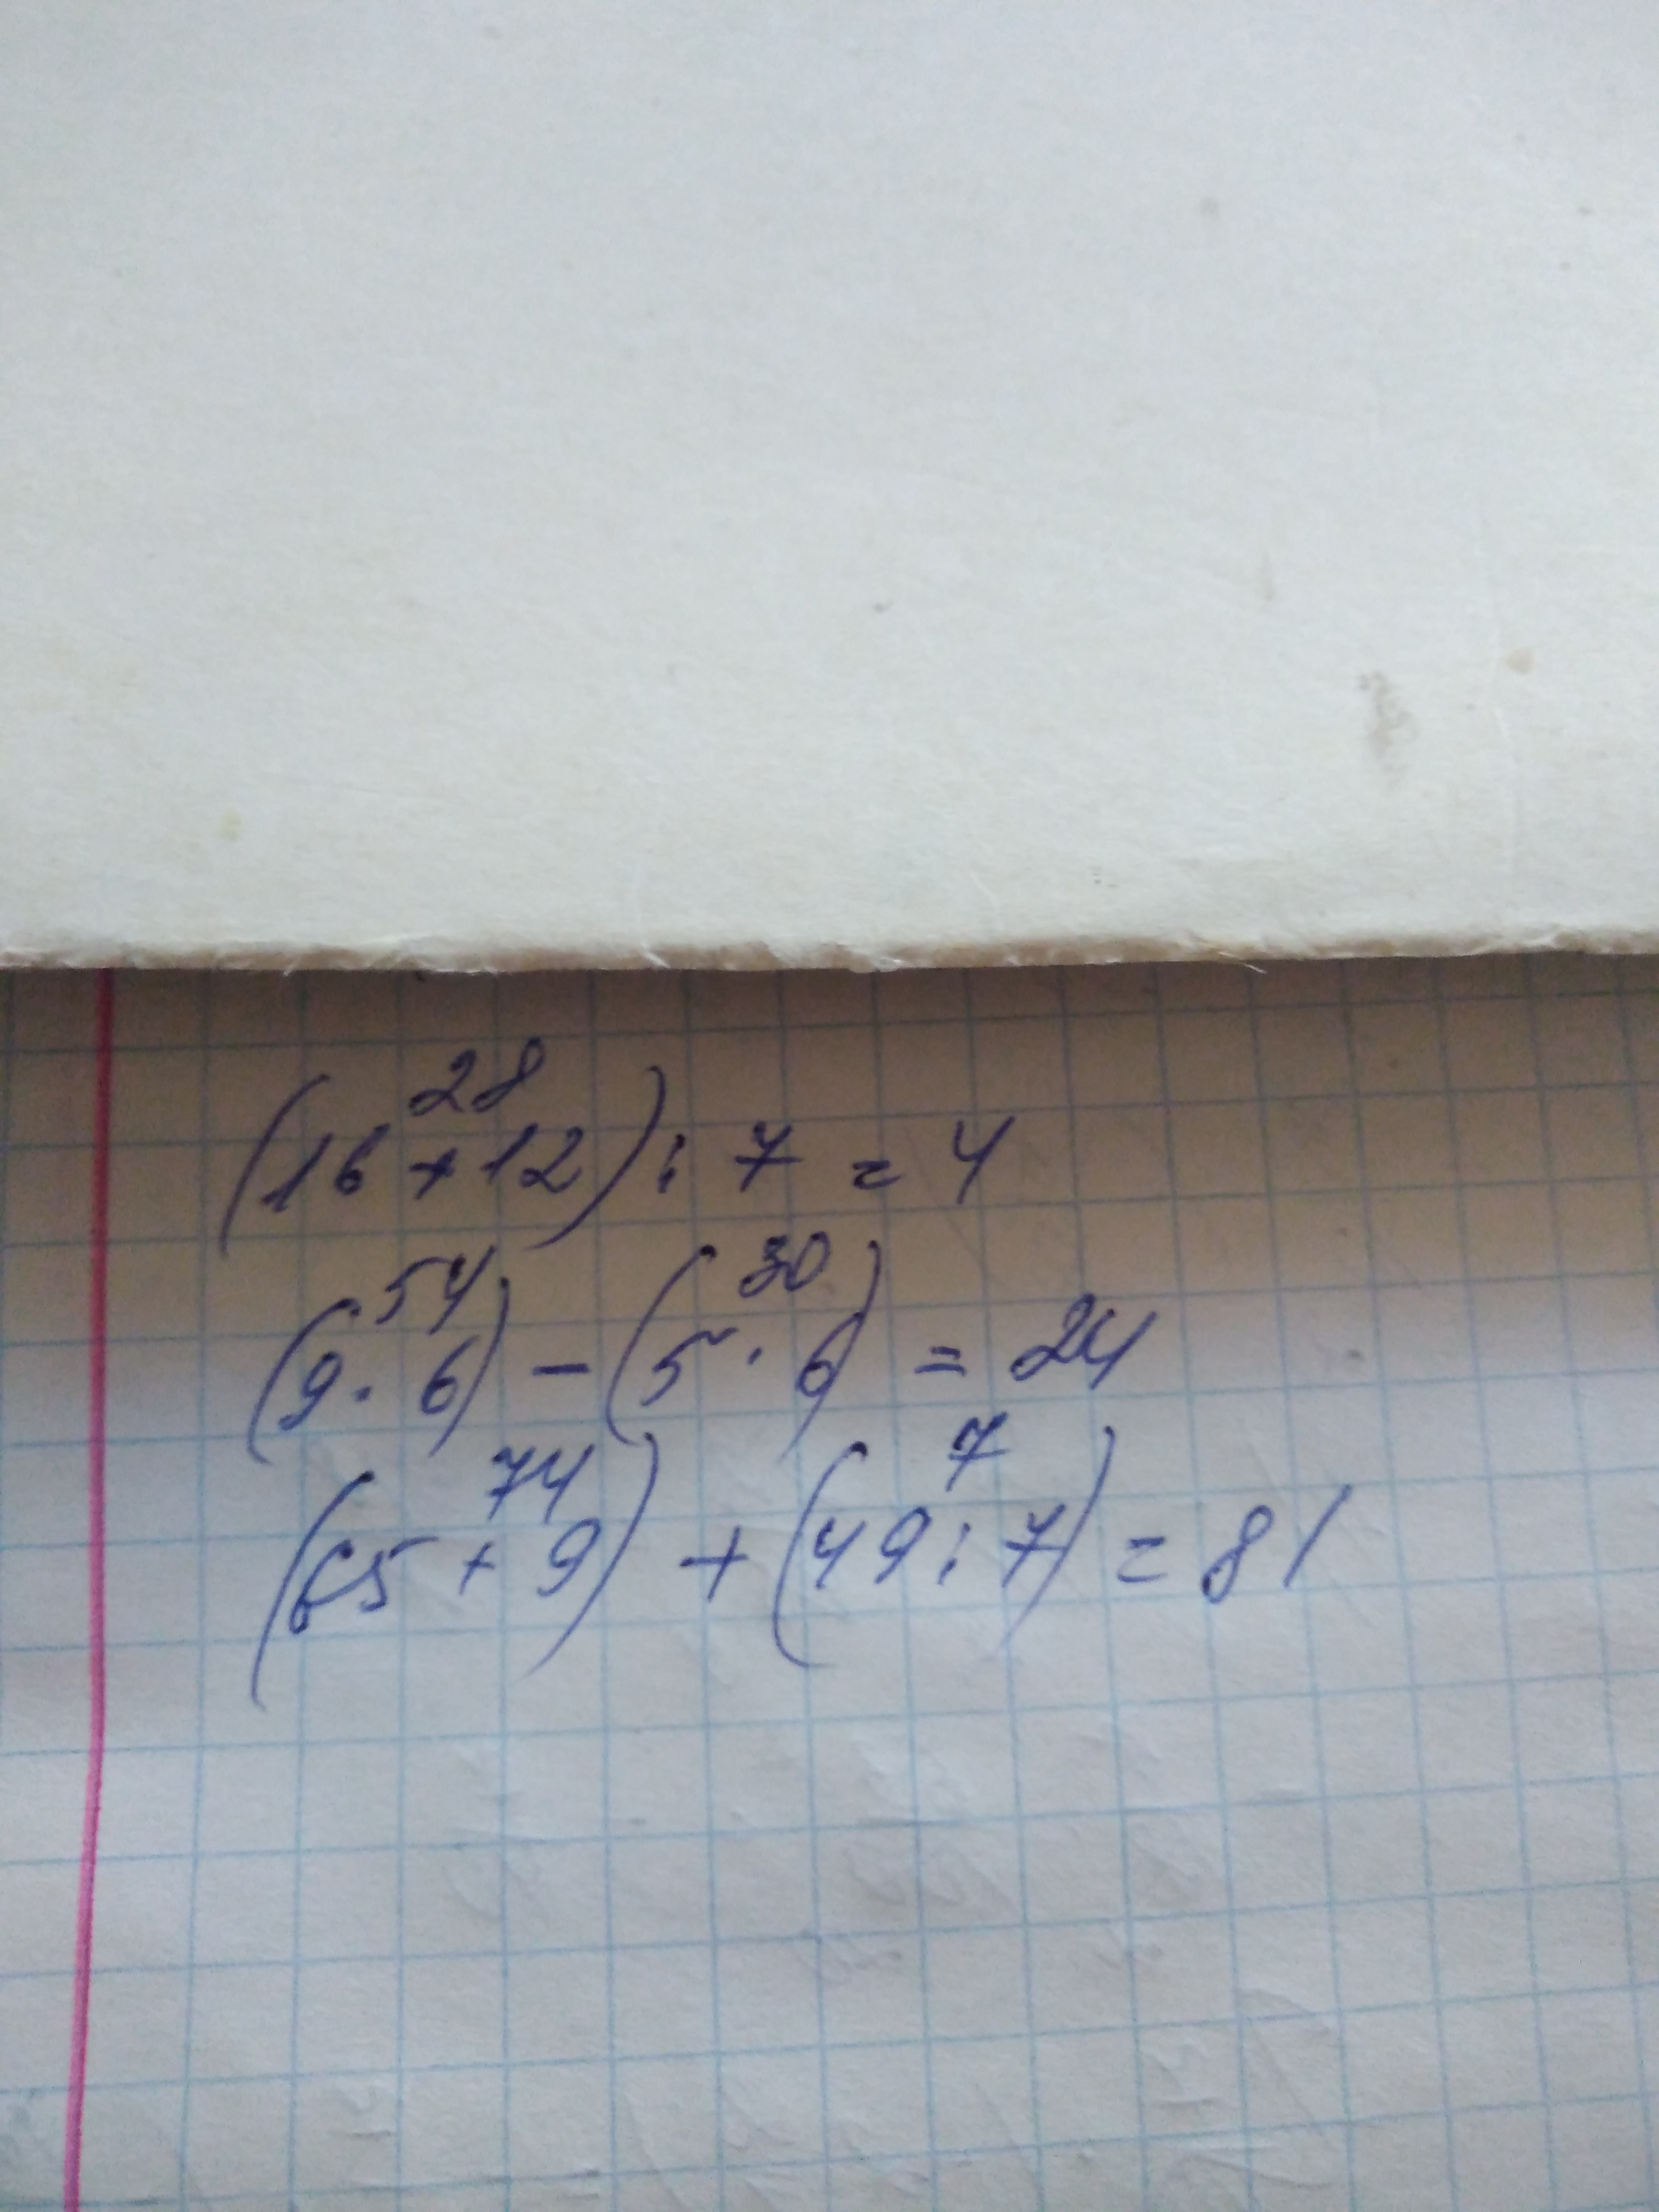 28
(16 + 12) : 7 = 4
54 30
(9 · 6) - (5 · 6) = 24
74 7
(65 + 9) + (49 : 7) = 81